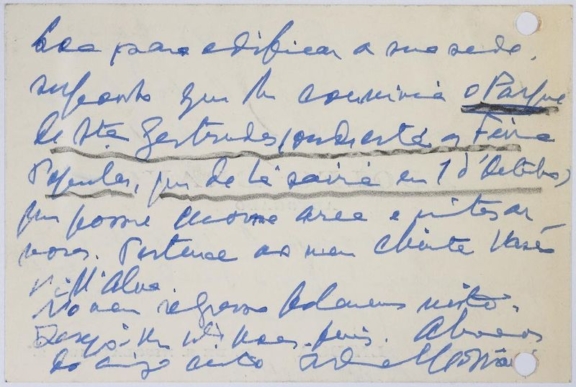 boa para edificar a sua sede,
suponho que lhe conviria o Parque
de Sta Gertrudes, onde está a Feira
Popular, que de lá sairá em 1 d'Outubro,
que possue enorme area e
Pertence ao meu cliente Vasco
Vill'Alva.
No meu regresso falaremos nisto.
Desejo-lhe ferias. Abraços
do amigo muito